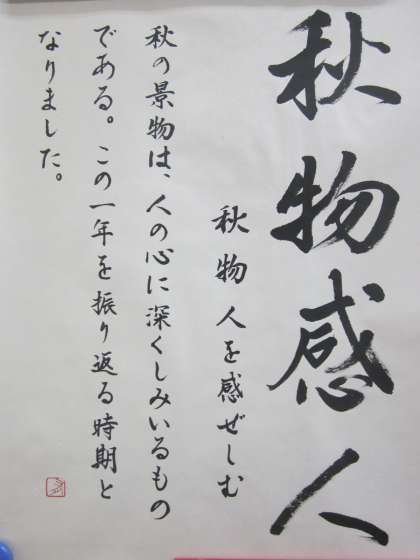 秋物感人
秋物人を感ぜしむ
秋の景物は、人の心に深くしみいるもの
である。この一年を振り返る時期と
なりました。